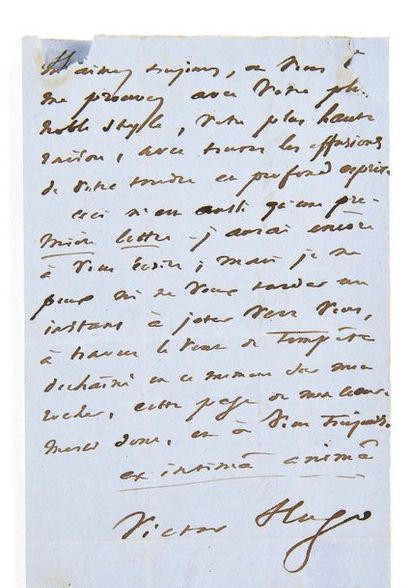 m'aimez toujours, et vous
me prouvez avec votre plus
noble style, votre plus haute
raison, avec toutes les effusions
de votre tendre et profond esprit.
Ceci n'est aussi qu'une pre-
mière lettre. j'aurai encore
à vous écrire ; mais je ne
peux ni ne veux tarder un
instant à jeter vers vous,
à travers le vent de tempête
déchaîné en ce moment sur mon
rocher, cette page de mon cœur.
Merci donc, et à vous toujours.
ex intimâ animâ
Victor Hugo